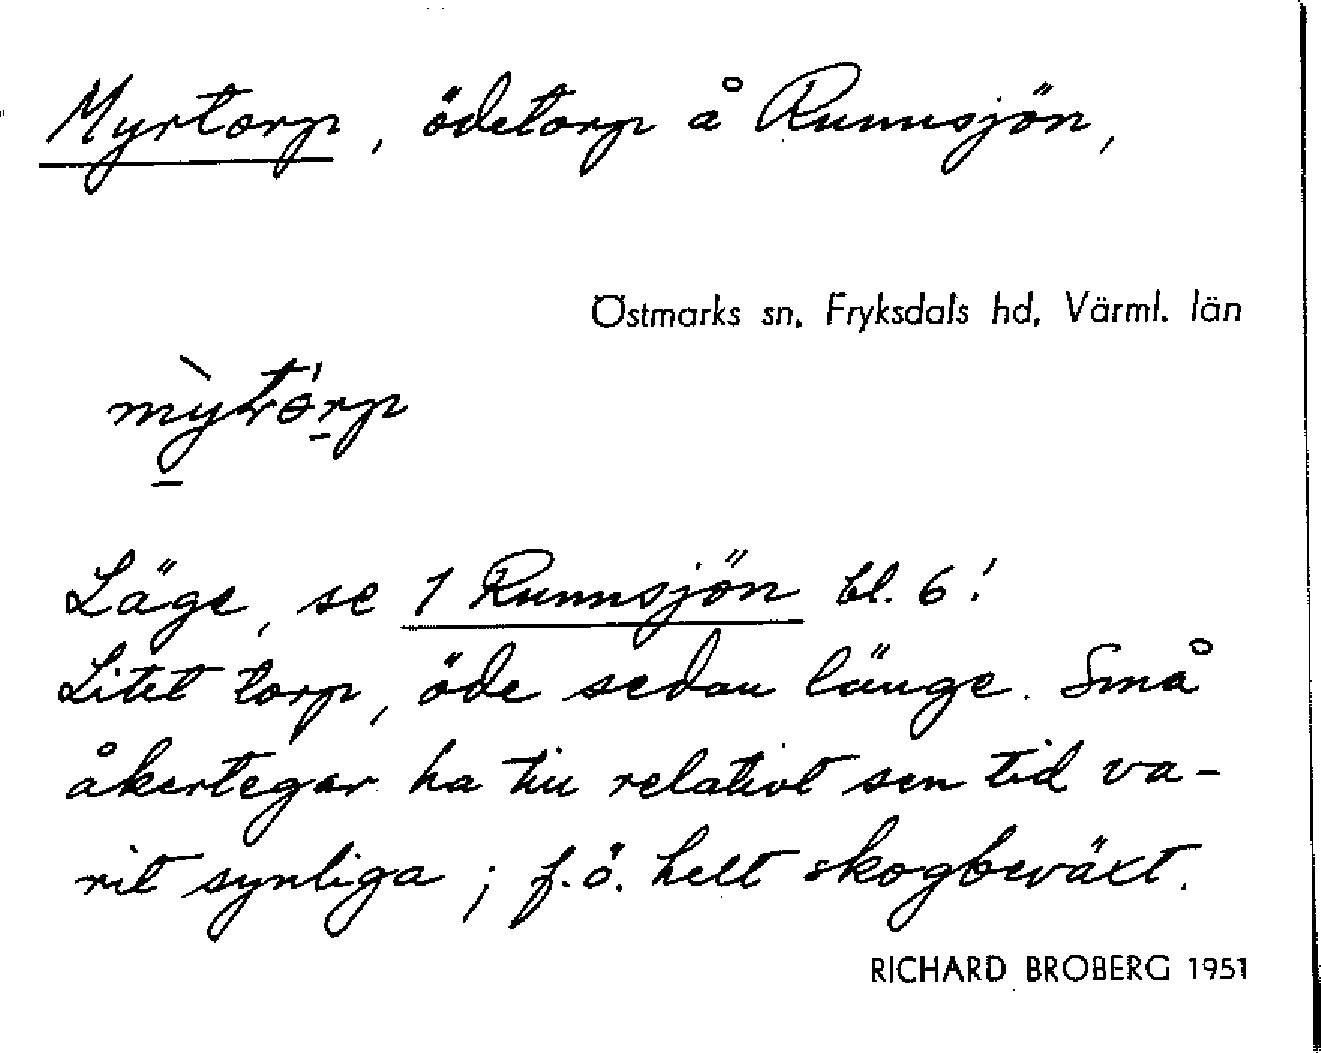 Myrtorp, ödetorp å Runnsjön,
Östmarks sn, Fryksdals hd, Värml. län
Läge, se 1 Runnsjön bl. 6!
Litet torp, öde sedan länge. Små
åkertegar ha tiu relativt sen tid va-
rit synliga; f.ö. helt skogbeväxt.
RICHARD BROBERG 1951